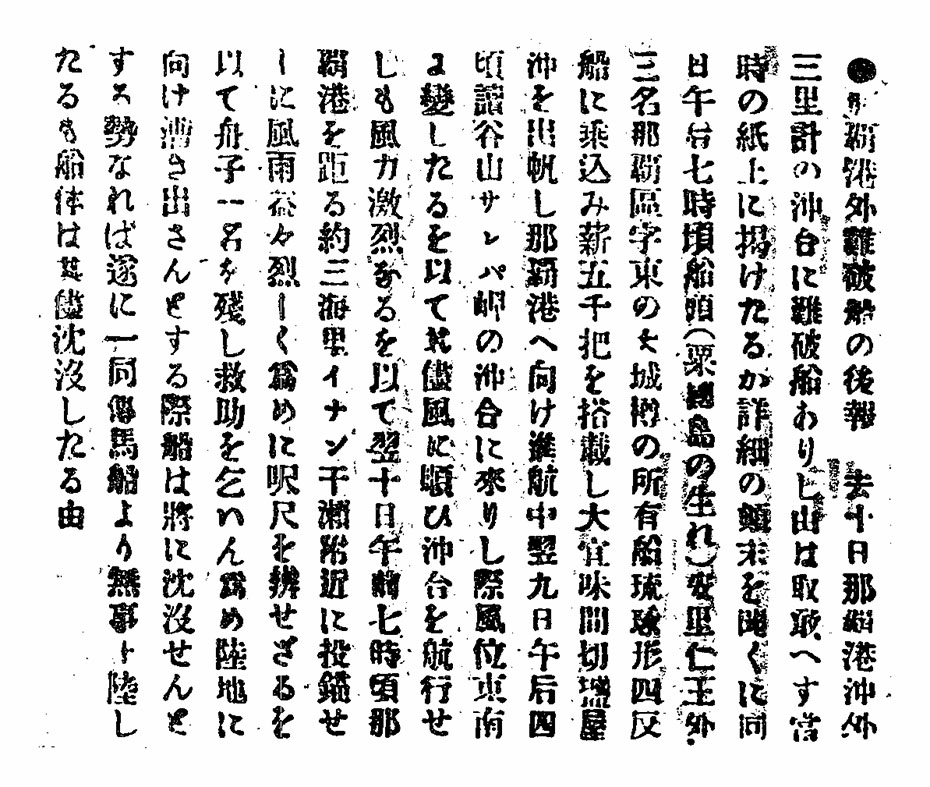 ●那覇港外難破船の後報　去十日那覇港沖外
三里計の沖合に難破船ありし由は取敢へす當
時の紙上に掲けたるか詳細の顛末を聞くに同
日午台七時頃船頭(粟國島の生れ)安里仁王外
三名那覇區字東の大城樽の所有船琉球形四反
船に乘込み薪五千把を搭載し大宜味間切塩屋
沖を出帆し那覇港へ向け進航中翌九日午后四
頃讀谷山サレパ岬の沖合に來りし際風位東南
よ變したるを以て其儘風に順ひ沖合を航行せ
しも風力激烈なるを以て翌十日午前七時頃那
覇港を距る約三海里イナン干瀬附近に投錨せ
しに風雨益々烈しく爲めに咫尺を辨せざるを
以て舟子一名を残し救助を乞いん爲め陸地に
向け漕き出さんとする際船は將に沈没せんと
する勢なれば遂に一同傳馬船より無事上陸し
たるも船体は其儘沈没したる由